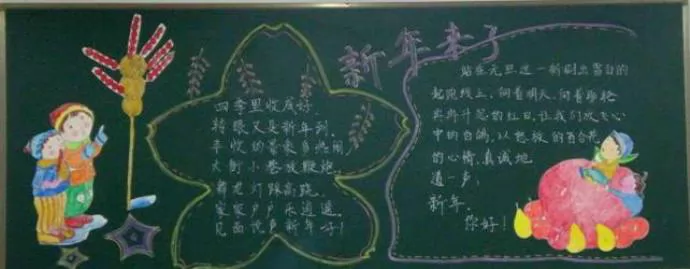 新年来了
四季里收成好,
转眼又是新年到,
丰收的喜来多热闹,
大街小巷放鞭炮,
舞龙灯踩高跷,
家家户户乐逍遥,
见面说声新年好!
站在元旦这一崭新出留白的
起跑线上,向着明天,向着
冉冉升起的红日,让我们放飞心
中的白鸽,以怒放的百合花
的心情,真诚地
道一声:
新年,
你好!